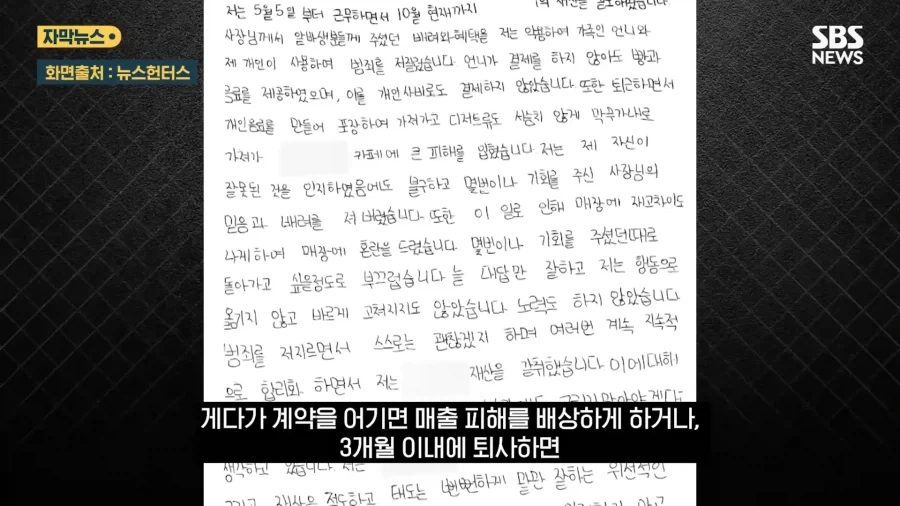 자막뉴스
화면출처 : 뉴스헌터스
SBS
NEWS
저는 5월 5일 부터 근무하면서 10월 현재까지
사장님께서 알바생분들께 주셨던 배려와 혜택을 저는 악용하여 가족인 언니와
제 개인이 사용하여 범죄를 저질렀습니다 언니가 결제를 하지 않아도 빵과
음료를 제공하였으며, 이를 개인사비로도 결제하지 않았습니다 또한 퇴근하면서
개인음료를 만들어 포장하여 가져가고 디저트류도 서슴치 않게 막무가내로
가져가 카페에 큰 피해를 입혔습니다 저는 제 자신이
잘못된 것을 인지하였음에도 불구하고 몇번이나 기회를 주신 사장님의
믿음과 배려를 져 버렸습니다. 또한 이 일로 인해 매장에 재고차이도
나게하여 매장에 혼란을 드렸습니다 몇번이나 기회를 주셨던때로
돌아가고 싶을정도로 부끄럽습니다 늘 대답만 잘하고 저는 행동으로
옮기지 않고 바르게 고쳐지지도 않았습니다 노력도 하지 않았습니다
범죄를 저지르면서 스스로는 괜찮겠지 하며 여러번 계속 지속적
으로 합리화 하면서 저는 재산을 갈취했습니다 이에대해
게다가 계약을 어기면 매출 피해를 배상하게 하거나,
3개월 이내에 퇴사하면
생각하고 있습니다. 저는 뻔뻔하게 말만 잘하는 위선적인